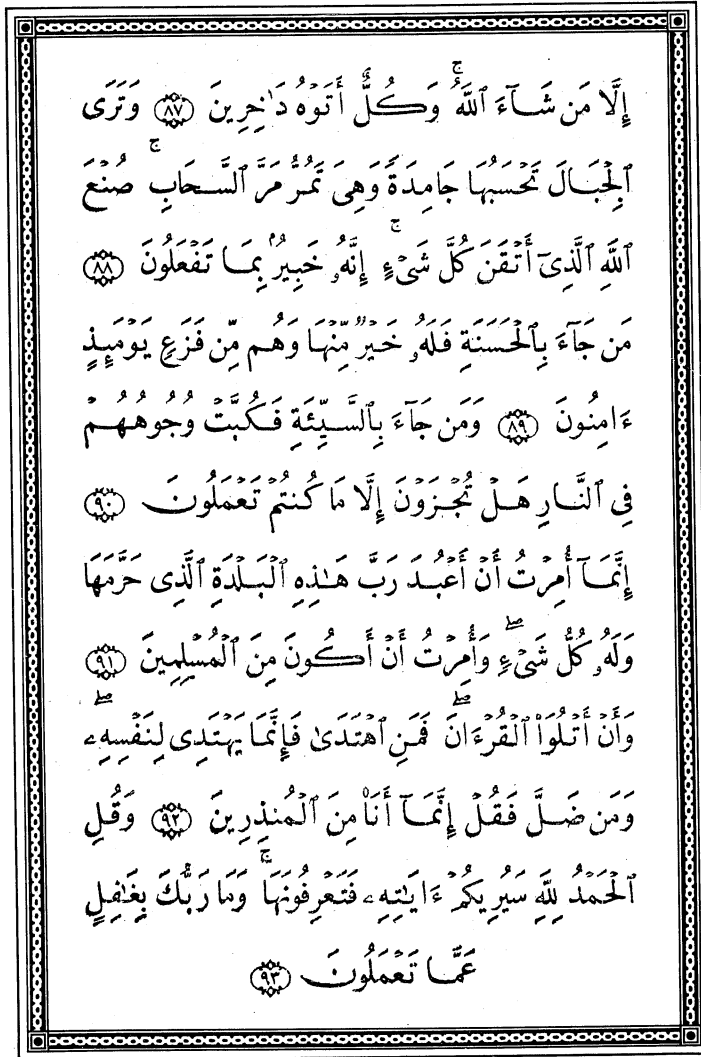 إِلَّا مَن شَآءَ ٱللَّهُ ۚ وَكُلٌّ أَتَوْهُ دَٰخِرِينَ ﴿٨٧﴾ وَتَرَى
ٱلْجِبَالَ تَحْسَبُهَا جَامِدَةً وَهِىَ تَمُرُّ مَرَّ ٱلسَّحَابِ ۚ صُنْعَ
ٱللَّهِ ٱلَّذِىٓ أَتْقَنَ كُلَّ شَىْءٍ ۚ إِنَّهُۥ خَبِيرٌۢ بِمَا تَفْعَلُونَ ﴿٨٨﴾
مَن جَآءَ بِٱلْحَسَنَةِ فَلَهُۥ خَيْرٌ مِّنْهَا وَهُم مِّن فَزَعٍ يَوْمَئِذٍ
ءَامِنُونَ ﴿٨٩﴾ وَمَن جَآءَ بِٱلسَّيِّئَةِ فَكُبَّتْ وُجُوهُهُمْ
فِى ٱلنَّارِ هَلْ تُجْزَوْنَ إِلَّا مَا كُنتُمْ تَعْمَلُونَ ﴿٩٠﴾
إِنَّمَآ أُمِرْتُ أَنْ أَعْبُدَ رَبَّ هَٰذِهِ ٱلْبَلْدَةِ ٱلَّذِى حَرَّمَهَا
وَلَهُۥ كُلُّ شَىْءٍ ۖ وَأُمِرْتُ أَنْ أَكُونَ مِنَ ٱلْمُسْلِمِينَ ﴿٩١﴾
وَأَنْ أَتْلُوَا۟ ٱلْقُرْءَانَ ۖ فَمَنِ ٱهْتَدَىٰ فَإِنَّمَا يَهْتَدِى لِنَفْسِهِۦ ۖ
وَمَن ضَلَّ فَقُلْ إِنَّمَآ أَنَا۠ مِنَ ٱلْمُنذِرِينَ ﴿٩٢﴾ وَقُلِ
ٱلْحَمْدُ لِلَّهِ سَيُرِيكُمْ ءَايَٰتِهِۦ فَتَعْرِفُونَهَا ۚ وَمَا رَبُّكَ بِغَٰفِلٍ
عَمَّا تَعْمَلُونَ ﴿٩٣﴾